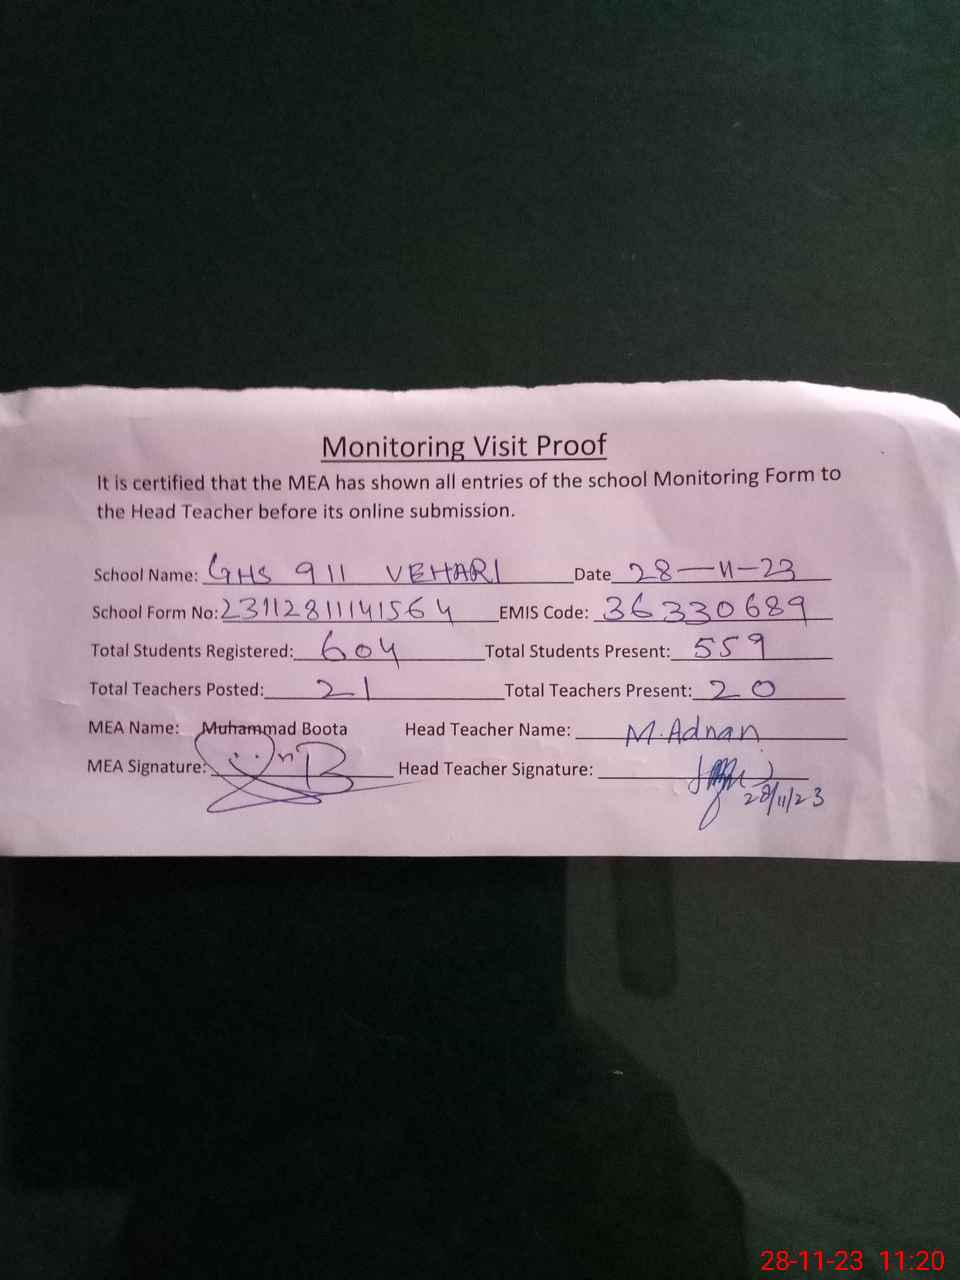 Monitoring Visit Proof
It is certified that the MEA has shown all entries of the school Monitoring Form to
the Head Teacher before its online submission.
School Name: GHS 911 VEHARI Date 28-11-23
School Form No: 23112811141564 EMIS Code: 36330689
Total Students Registered: 604 Total Students Present: 559
Total Teachers Posted: 21 Total Teachers Present: 20
MEA Name: Muhammad Boota Head Teacher Name: M. Adnan
MEA Signature: Head Teacher Signature:
28/11/23
28-11-23 11:20